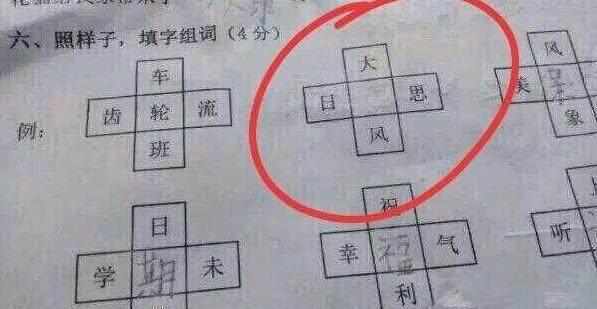 六、照样子，填字组词（4分）
车 大 风
例： 齿 轮 流 日 思 美 景
班 风 象
日 祝
学 期 未 幸 福 气 听
利